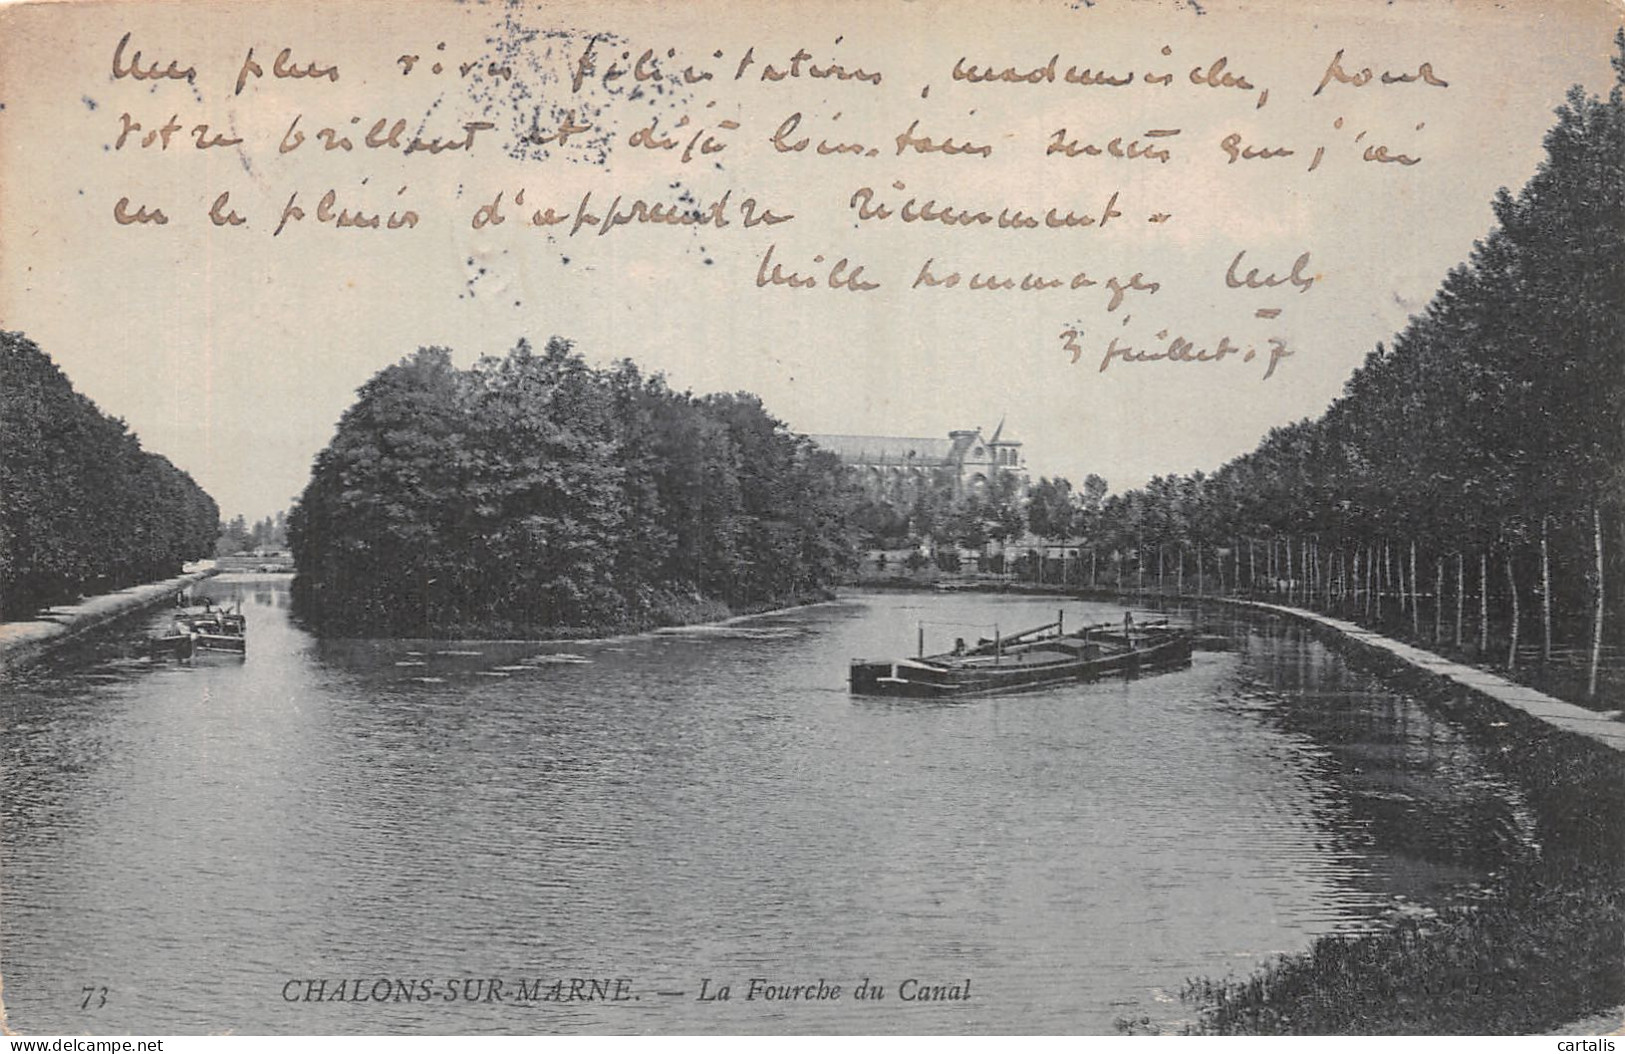 Mes plus vives félicitations, mademoiselle, pour
votre brillant et déjà lointain succès que j'ai
eu le plaisir d'apprendre récemment.
Mille hommages
3 juillet. 7
73 CHALONS-SUR-MARNE. — La Fourche du Canal
delcampe.net
cartalis